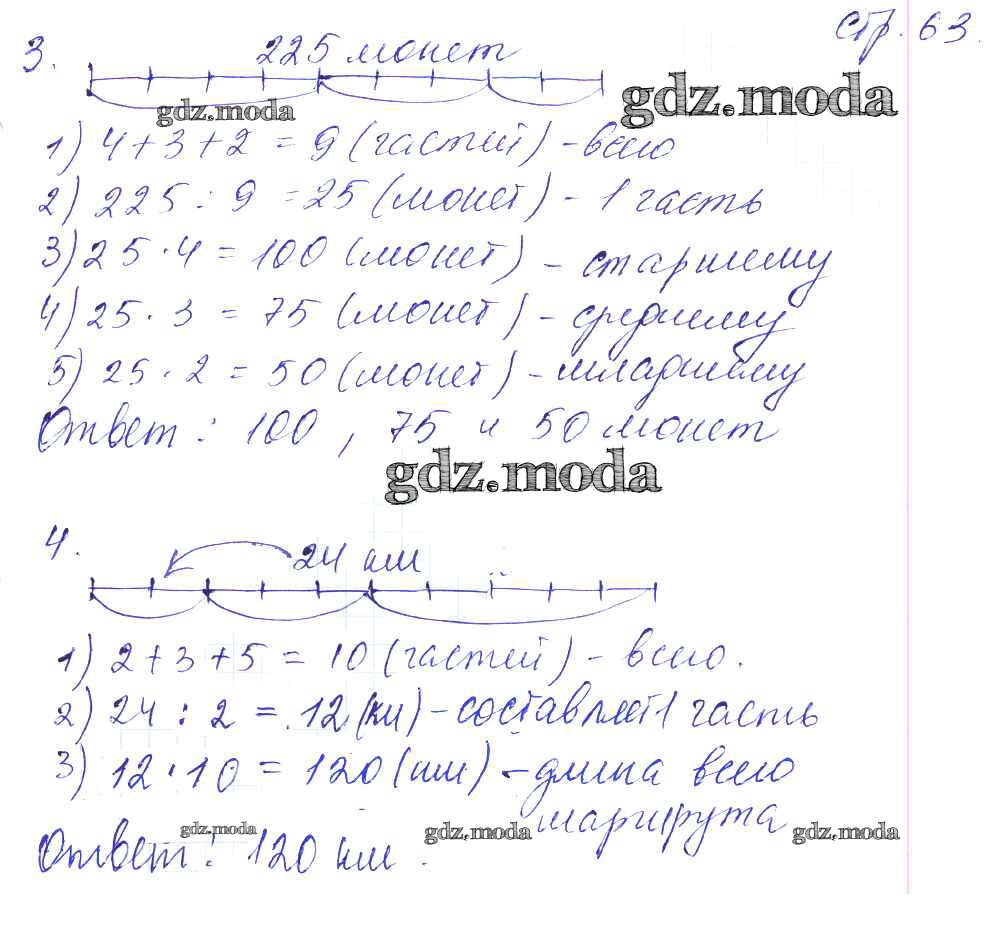 стр. 63.
3. 225 монет
gdz.moda gdz.moda
1) 4+3+2 = 9 (частей) - всего
2) 225 : 9 = 25 (монет) - 1 часть
3) 25 · 4 = 100 (монет) - старшему
4) 25 · 3 = 75 (монет) - среднему
5) 25 · 2 = 50 (монет) - младшему
Ответ : 100 , 75 и 50 монет
gdz.moda
4. 24 км
1) 2+3+5 = 10 (частей) - всего.
2) 24 : 2 = 12 (км) - составляет 1 часть
3) 12 · 10 = 120 (км) - длина всего
маршрута
gdz.moda gdz.moda gdz.moda
Ответ : 120 км .